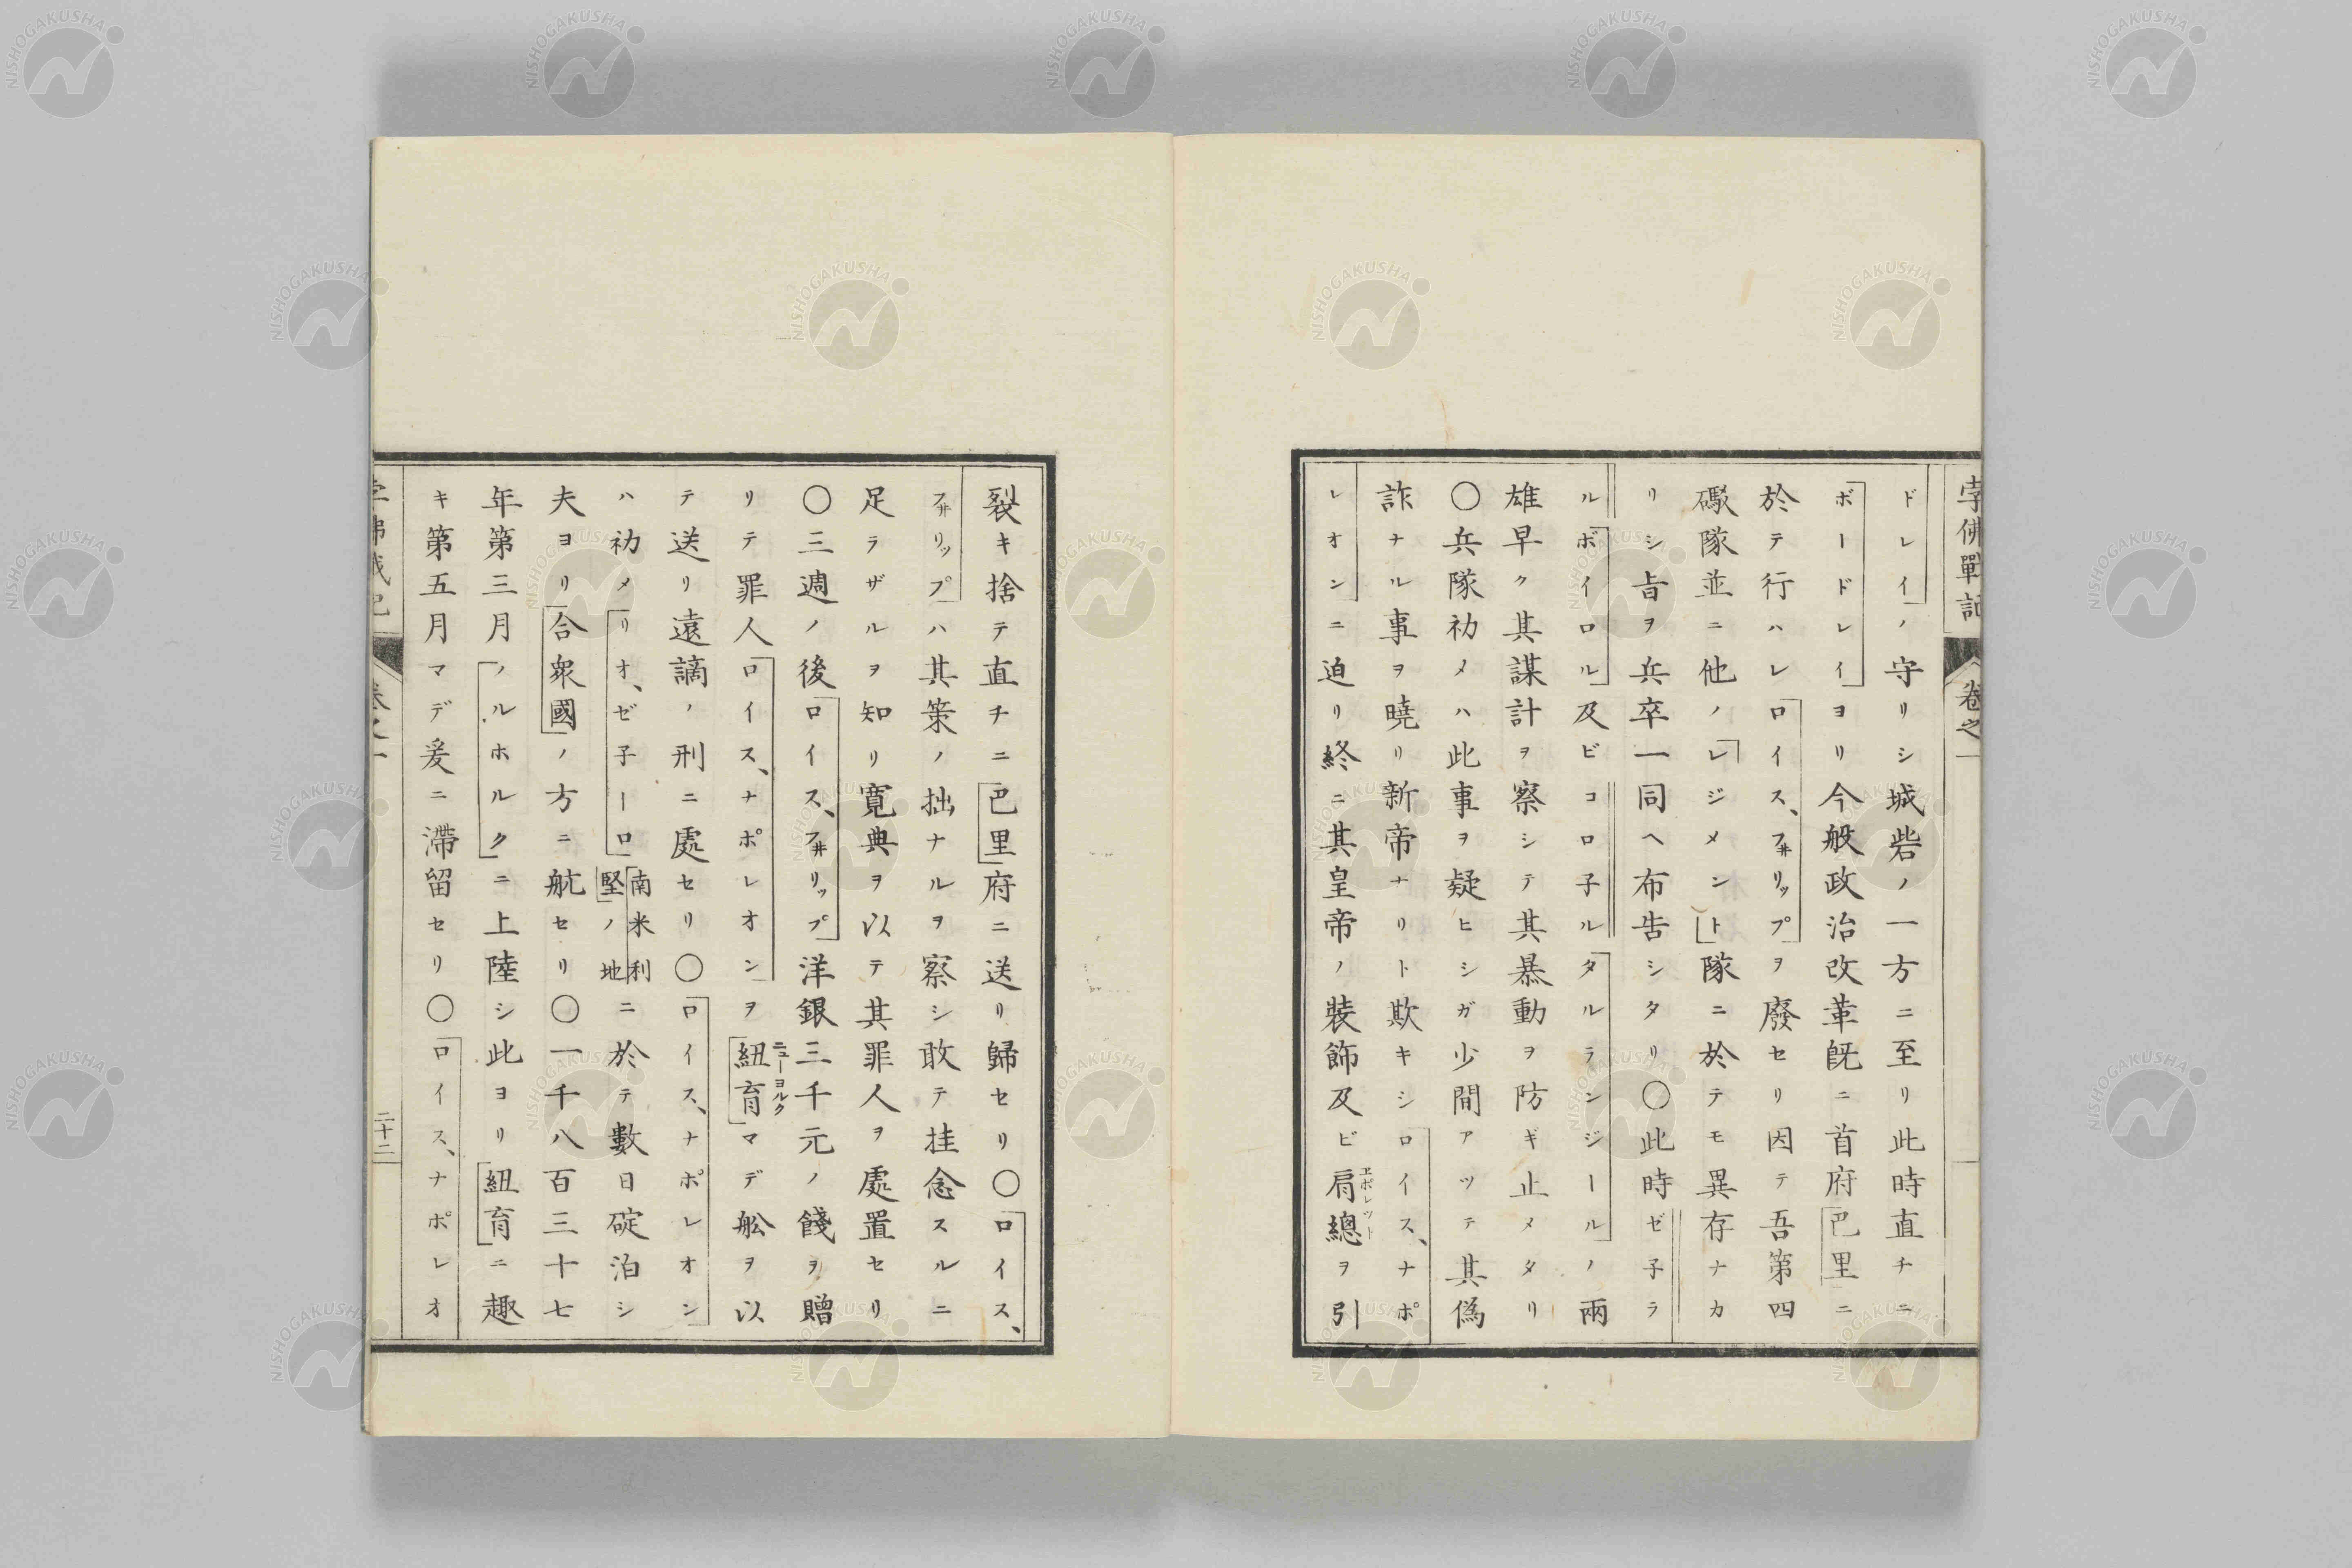 孛佛戰記 卷之一
ドレイノ守リシ城砦ノ一方ニ至リ此時直チニ
ボードレイヨリ今般政治改革既ニ首府巴里ニ
於テ行ハレロイス、フ井リップヲ廢セリ因テ吾第四
礮隊並ニ他ノレジメント隊ニ於テモ異存ナカ
リシ旨ヲ兵卒一同ヘ布告シタリ〇此時ゼ子ラ
ルボイロル及ビコロ子ルタルランジールノ兩
雄早ク其謀計ヲ察シテ其暴動ヲ防ギ止メタリ
〇兵隊初メハ此事ヲ疑ヒシガ少間アッテ其僞
詐ナル事ヲ曉リ新帝ナリト欺キシロイス、ナポ
レオンニ迫リ終ニ其皇帝ノ裝飾及ビ肩總ヲ引
エポレット
裂キ捨テ直チニ巴里府ニ送リ歸セリ〇ロイス、
フ井リップハ其策ノ拙ナルヲ察シ敢テ挂念スルニ
足ラザルヲ知リ寛典ヲ以テ其罪人ヲ處置セリ
〇三週ノ後ロイス、フ井リップ洋銀三千元ノ餞ヲ贈
リテ罪人ロイス、ナポレオンヲ紐育マデ舩ヲ以
ニューヨルク
テ送リ遠謫ノ刑ニ處セリ〇ロイス、ナポレオン
ハ初メリオ、ゼ子ーロ南米利堅ノ地ニ於テ數日碇泊シ
夫ヨリ合衆國ノ方ニ航セリ〇一千八百三十七
年第三月ノルホルクニ上陸シ此ヨリ紐育ニ趣
キ第五月マデ爰ニ滯留セリ〇ロイス、ナポレオ
二十二
NISHOGAKUSHA